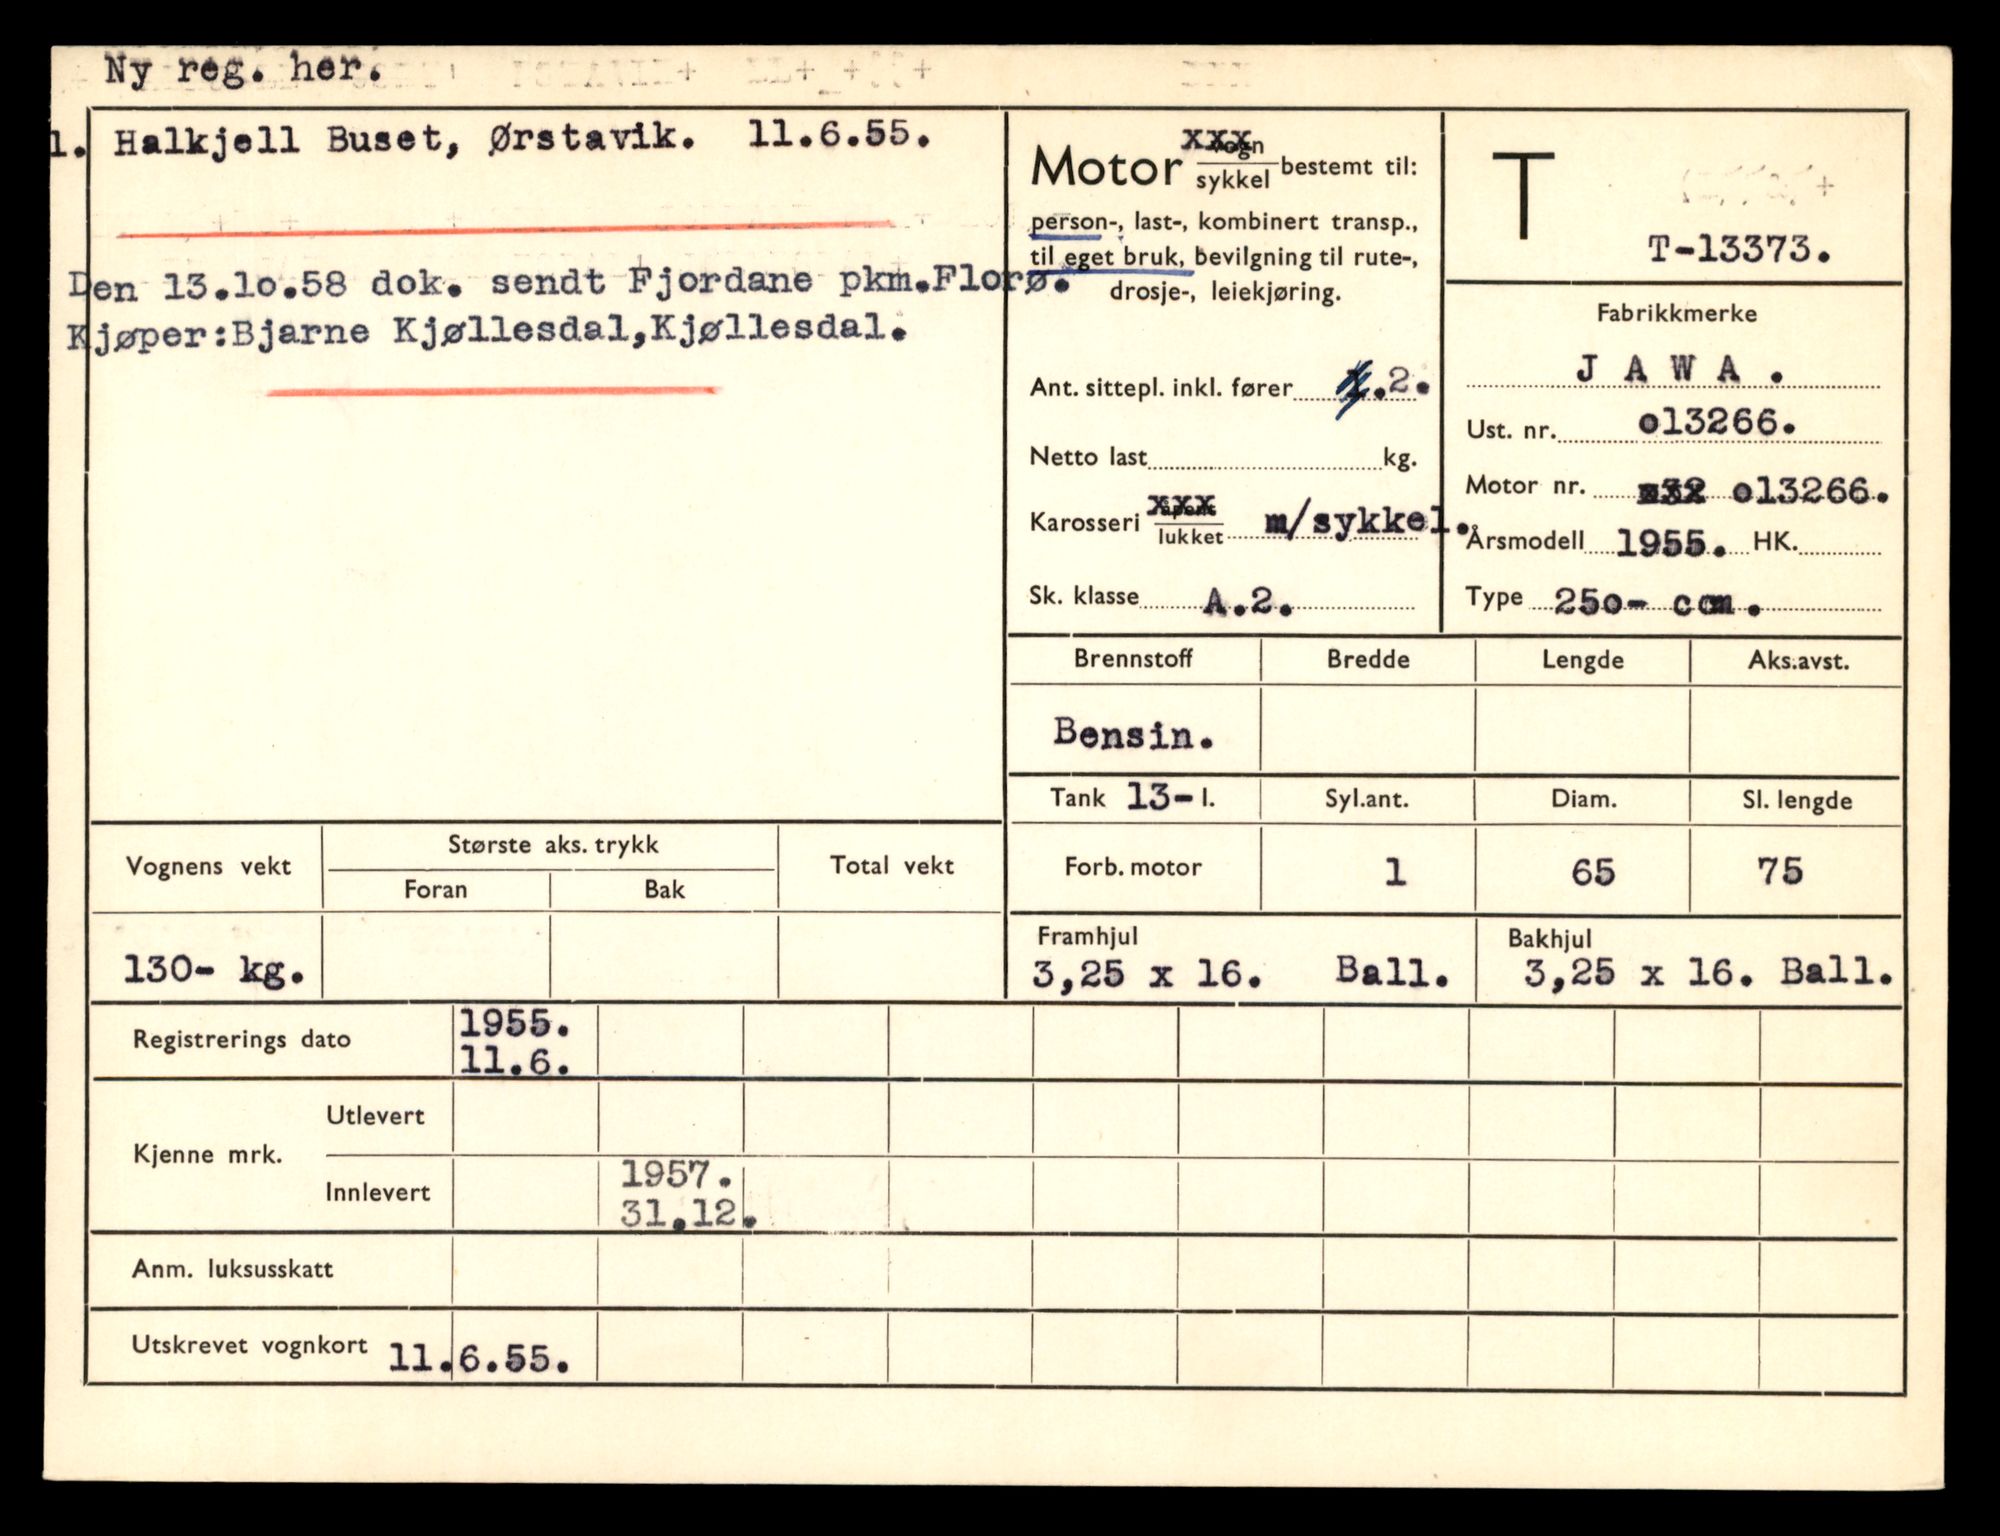 Ny reg. her.
1. Halkjell Buset, Ørstavik. 11.6.55.
Den 13.1o.58 dok. sendt Fjordane pkm.Florø.
Kjøper:Bjarne Kjøllesdal,Kjøllesdal.
Motor vogn/sykkel bestemt til:
person-, last-, kombinert transp.,
til eget bruk, bevilgning til rute-,
drosje-, leiekjøring.
Ant. sittepl. inkl. fører 1.2.
Netto last kg.
Karosseri åpent/lukket m/sykkel.
Sk. klasse A.2.
T
T-13373.
Fabrikkmerke
J A W A .
Ust. nr. o13266.
Motor nr. o13266.
Årsmodell 1955. HK.
Type 25o- ccm.
Brennstoff Bredde Lengde Aks.avst.
Bensin.
Tank 13- l. Syl.ant. Diam. Sl. lengde
Forb. motor 1 65 75
Framhjul Bakhjul
3,25 x 16. Ball. 3,25 x 16. Ball.
Vognens vekt Største aks. trykk Total vekt
Foran Bak
130- kg.
Registrerings dato 1955.
11.6.
Kjenne mrk.
Utlevert
Innlevert 1957.
31.12.
Anm. luksusskatt
Utskrevet vognkort 11.6.55.